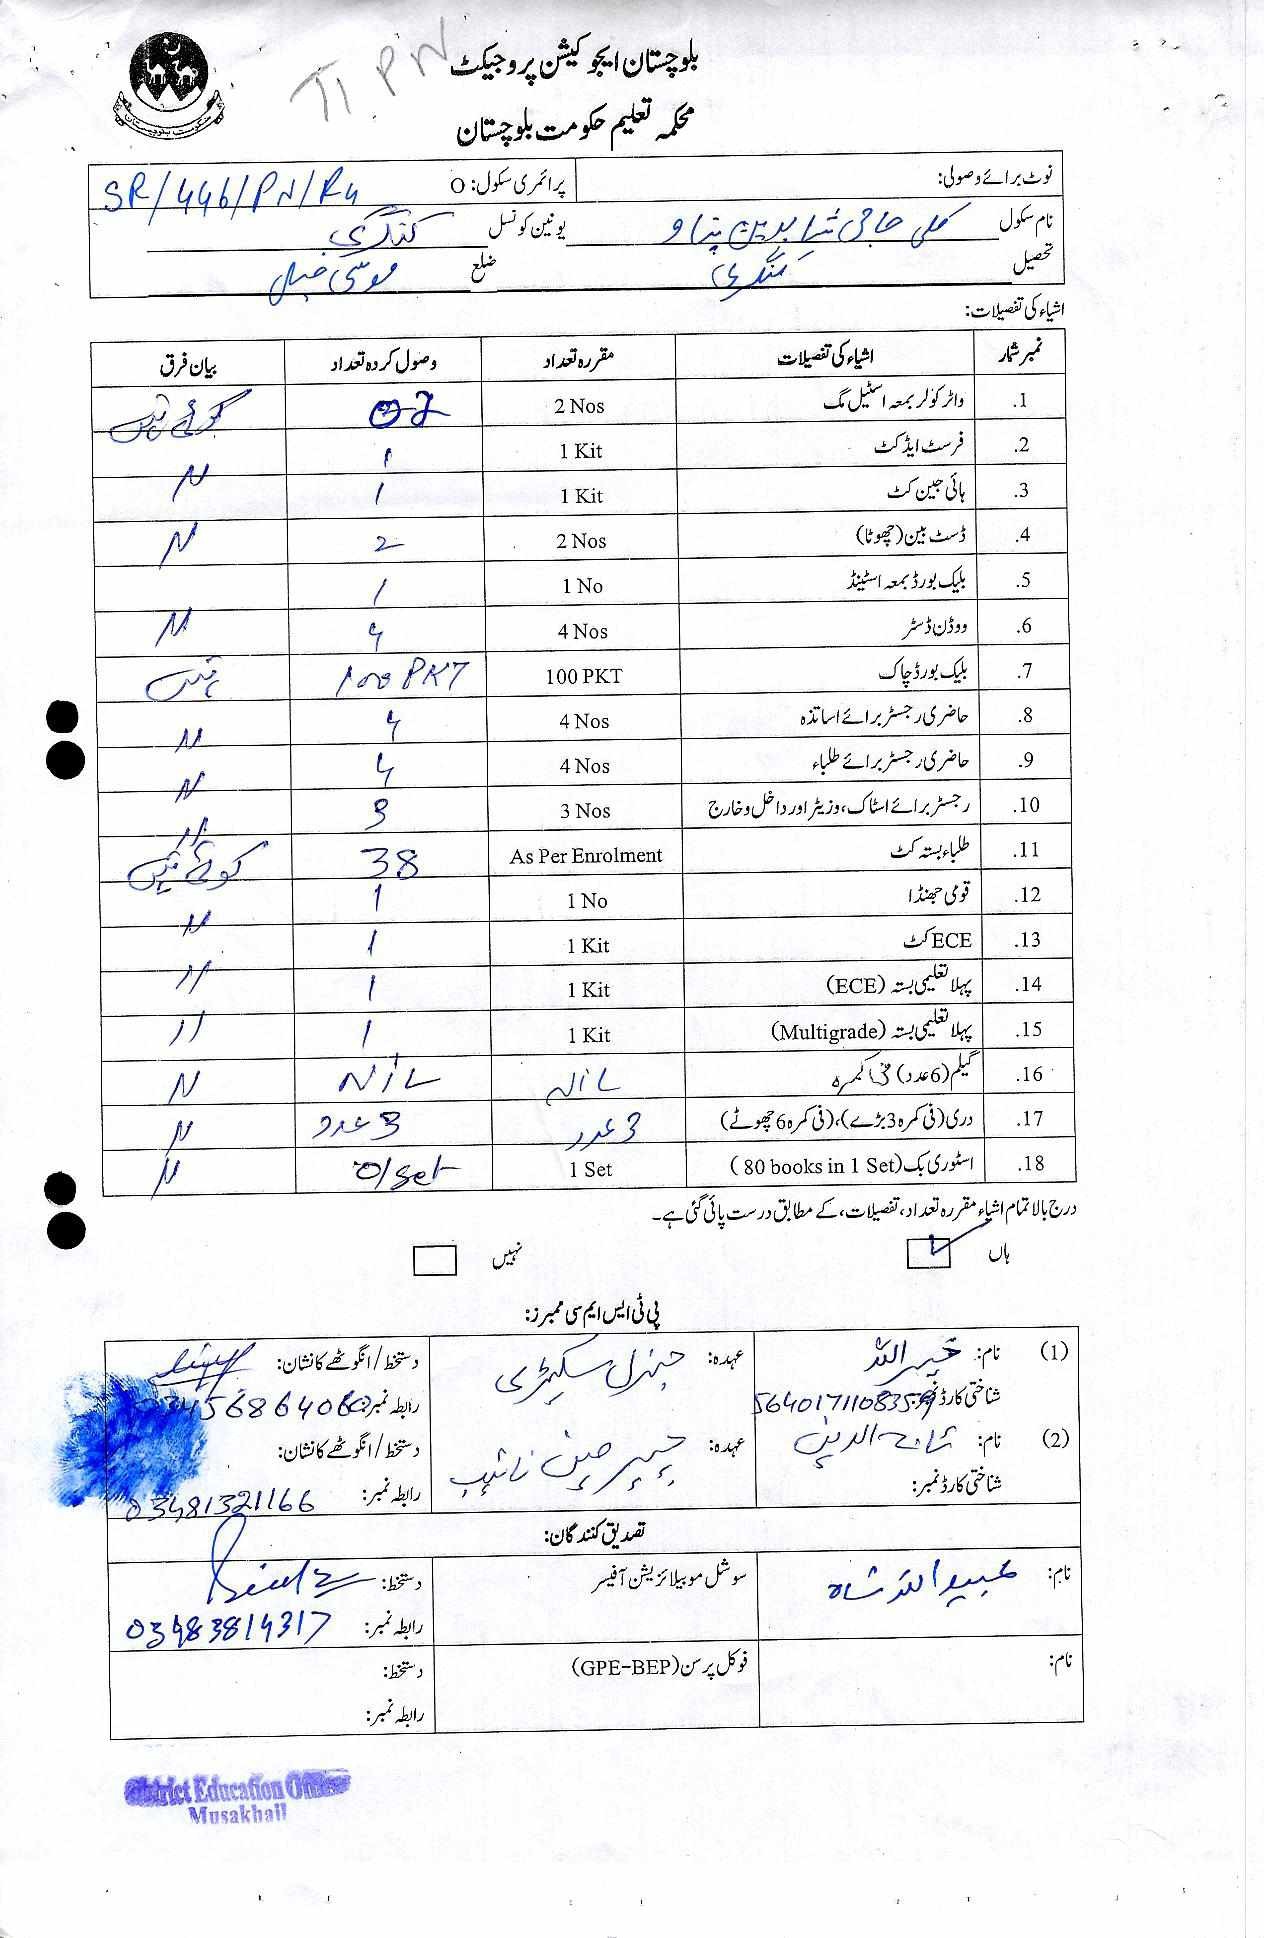 TI PN
بلوچستان ایجوکیشن پروجیکٹ
محکمہ تعلیم حکومت بلوچستان
نوٹ برائے وصولی: پرائمری سکول: O SR/446/PN/R4
نام سکول کلی حاجی یونین کونسل کنگری
تحصیل کنگری ضلع موسیٰ خیل
اشیاء کی تفصیلات:
نمبر شمار اشیاء کی تفصیلات مقررہ تعداد وصول کردہ تعداد بیان فرق
1. واٹر کولر بمعہ اسٹیل مگ 2 Nos 02 کوئی نہیں
2. فرسٹ ایڈ کٹ 1 Kit 1 //
3. ہائی جین کٹ 1 Kit 1
4. ڈسٹ بین (چھوٹا) 2 Nos 2 //
5. بلیک بورڈ بمعہ اسٹینڈ 1 No 1
6. ووڈن ڈسٹر 4 Nos 4 //
7. بلیک بورڈ چاک 100 PKT 100 PKT نہیں
8. حاضری رجسٹر برائے اساتذہ 4 Nos 4 //
9. حاضری رجسٹر برائے طلباء 4 Nos 4 //
10. رجسٹر برائے اسٹاک، وزیٹر اور داخل و خارج 3 Nos 3 //
11. طلباء بستہ کٹ As Per Enrolment 38 کوئی نہیں
12. قومی جھنڈا 1 No 1 //
13. ECE کٹ 1 Kit 1 //
14. پہلا تعلیمی بستہ (ECE) 1 Kit 1
15. پہلا تعلیمی بستہ (Multigrade) 1 Kit 1 //
16. گیلم (6 عدد) فی کمرہ NIL NIL //
17. دری (فی کمرہ 3 بڑے)، (فی کمرہ 6 چھوٹے) 3 عدد 3 عدد //
18. اسٹوری بک (80 books in 1 Set) 1 Set 01 Set //
درج بالا تمام اشیاء مقررہ تعداد، تفصیلات، کے مطابق درست پائی گئی ہے۔
ہاں ✓ نہیں
پی ٹی ایس ایم سی ممبرز:
(1) نام: خیر اللہ عہدہ: جنرل سیکیٹری دستخط / انگوٹھے کا نشان:
شناختی کارڈ نمبر: رابطہ نمبر:
(2) نام: عہدہ: چیئرمین نائب دستخط / انگوٹھے کا نشان:
شناختی کارڈ نمبر: رابطہ نمبر: 03481321166
تصدیق کنندگان:
نام: عبید اللہ شاہ سوشل موبیلائزیشن آفیسر دستخط:
رابطہ نمبر: 03483814317
نام: فوکل پرسن (GPE-BEP) دستخط:
رابطہ نمبر:
District Education Officer
Musakhail